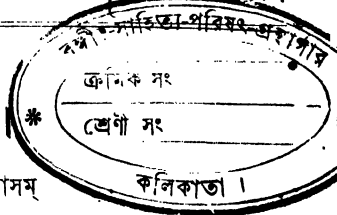 বঙ্গীয়-সাহিত্য-পরিষৎ-গ্রন্থাগার
ক্রমিক সং
শ্রেণী সং
* কলিকাতা ।